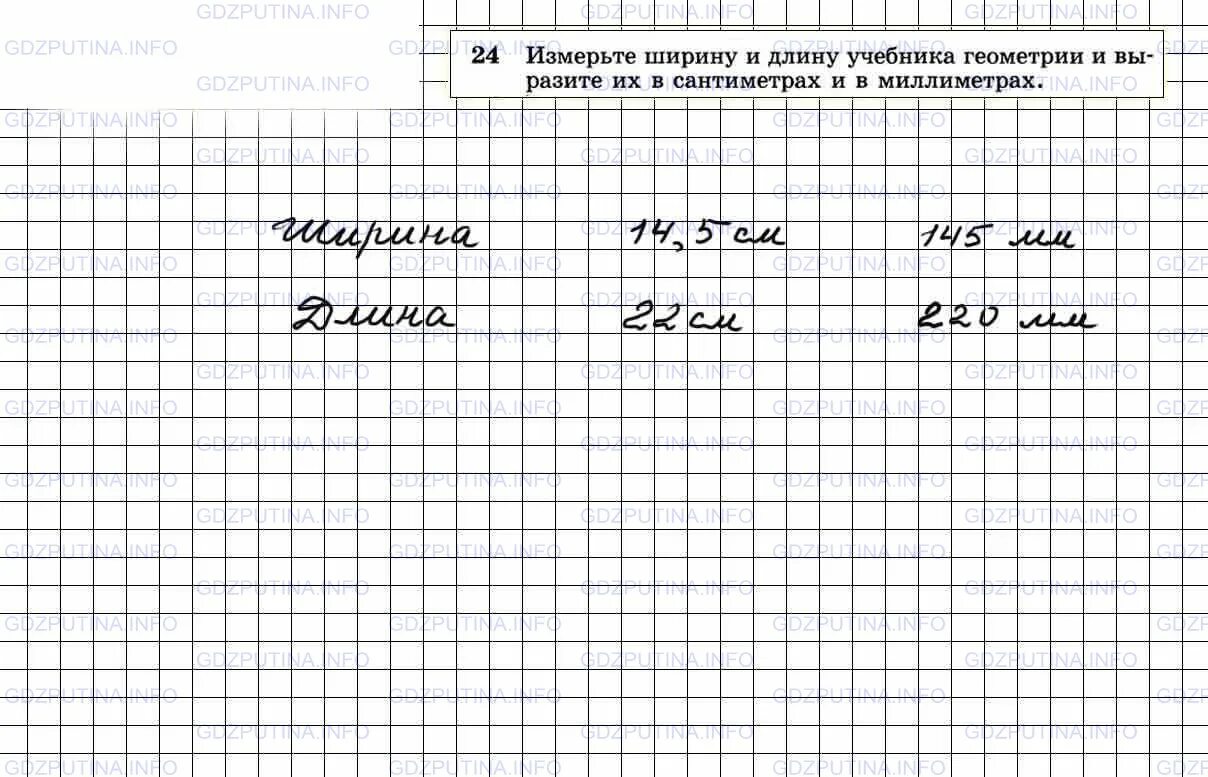 GDZPUTINA.INFO
24 Измерьте ширину и длину учебника геометрии и вы-
разите их в сантиметрах и в миллиметрах.
Ширина 14,5 см 145 мм
Длина 22 см 220 мм